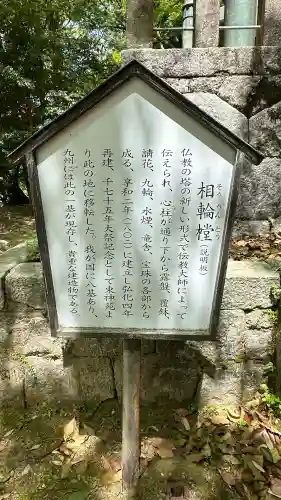 そうりんとう
相輪橖(説明板)
仏教の塔の新しい形式で伝教大師によって
伝えられ、心柱が通り、下から露盤、覆鉢、
請花、九輪、水煙、竜舎、宝珠の各部から
成る。享和二年(一八〇二)に建立し弘化四年
再建、千七十五年大祭記念として東神苑よ
り此の地に移転した。我が国に八基あり、
九州には此の一基が現存し、貴重な建造物で
ある。